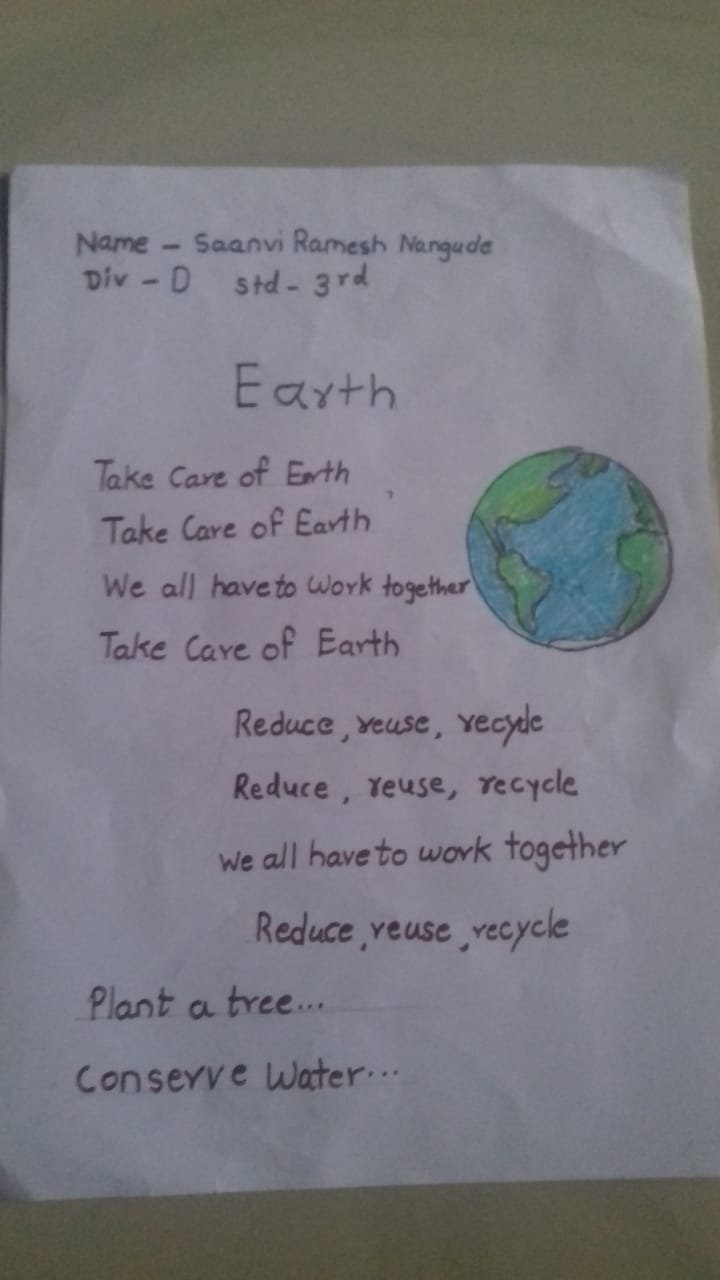 Name - Saanvi Ramesh Nangude
Div - D std - 3rd
Earth
Take Care of Earth
Take Care of Earth
We all have to work together
Take Care of Earth
Reduce, reuse, recycle
Reduce, reuse, recycle
we all have to work together
Reduce, reuse, recycle
Plant a tree...
Conserve Water...